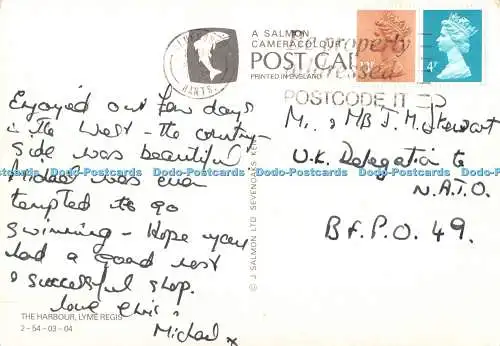 A SALMON
CAMERACOLOUR
POST CARD
PRINTED IN ENGLAND
HANTS.
POSTCODE IT
Enjoyed our few days
in the West - the country-
side was beautiful.
Michael was even
tempted to go
swimming - Hope you
had a good rest
& successful shop.
love
Michael x
THE HARBOUR, LYME REGIS
2-54-03-04
© J SALMON LTD SEVENOAKS KENT
4P
Mr. & Mrs J. M. Stewart
U.K. Delegation to
N.A.T.O.
B.F.P.O. 49.
Dodo-Postcards Dodo-Postcards Dodo-Postcards Dodo-Postcards